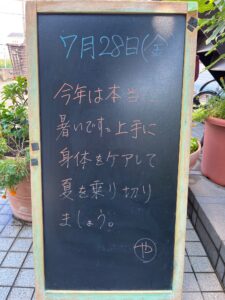 7月28日(金)
今年は本当
暑いです。上手に
身体をケアして
夏を乗り切り
ましょう。
や